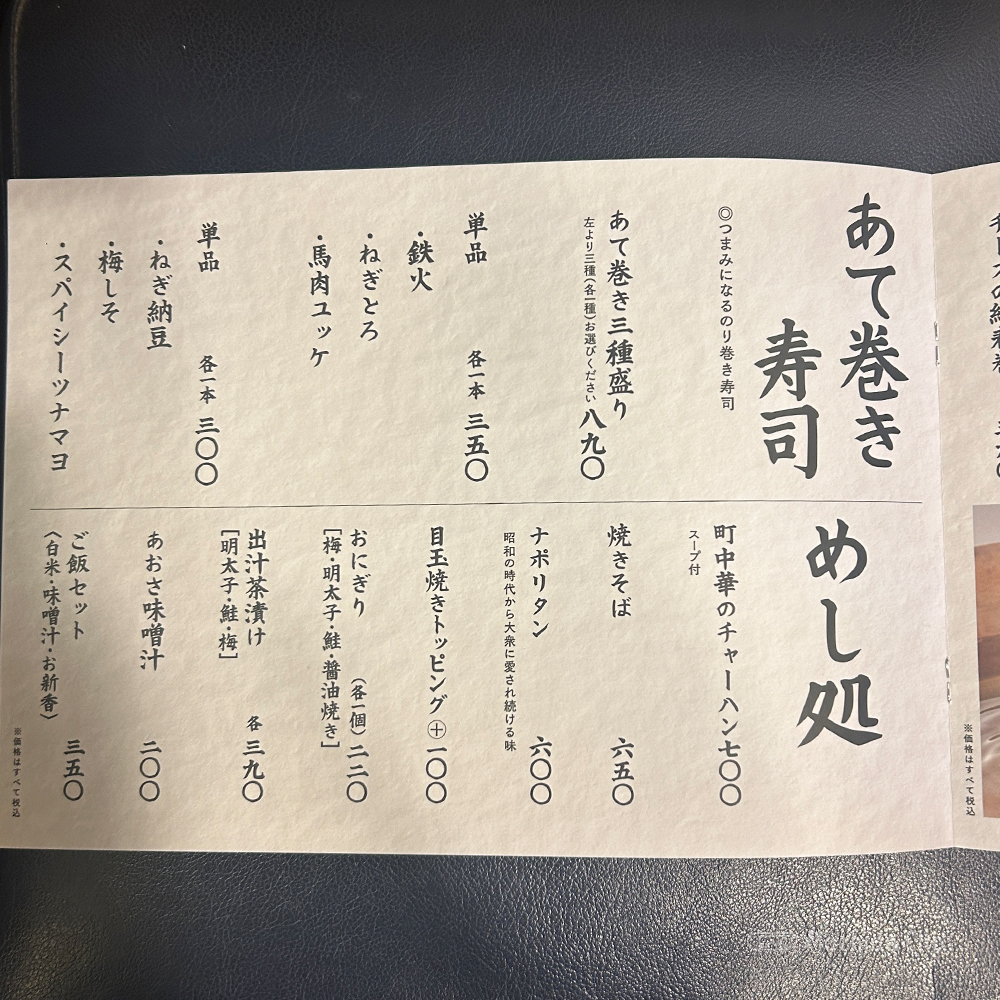 あて巻き
寿司
◎つまみになるのり巻き寿司
あて巻き三種盛り 八九〇
左より三種(各一種)お選びください
単品 各一本 三五〇
・鉄火
・ねぎとろ
・馬肉ユッケ
単品 各一本 三〇〇
・ねぎ納豆
・梅しそ
・スパイシーツナマヨ
めし処
町中華のチャーハン 七〇〇
スープ付
焼きそば 六五〇
ナポリタン 六〇〇
昭和の時代から大衆に愛され続ける味
目玉焼きトッピング ＋一〇〇
おにぎり (各一個) 二二〇
[梅・明太子・鮭・醤油焼き]
出汁茶漬け 各三九〇
[明太子・鮭・梅]
あおさ味噌汁 二〇〇
ご飯セット 三五〇
〈白米・味噌汁・お新香〉
※価格はすべて税込
※価格はすべて税込